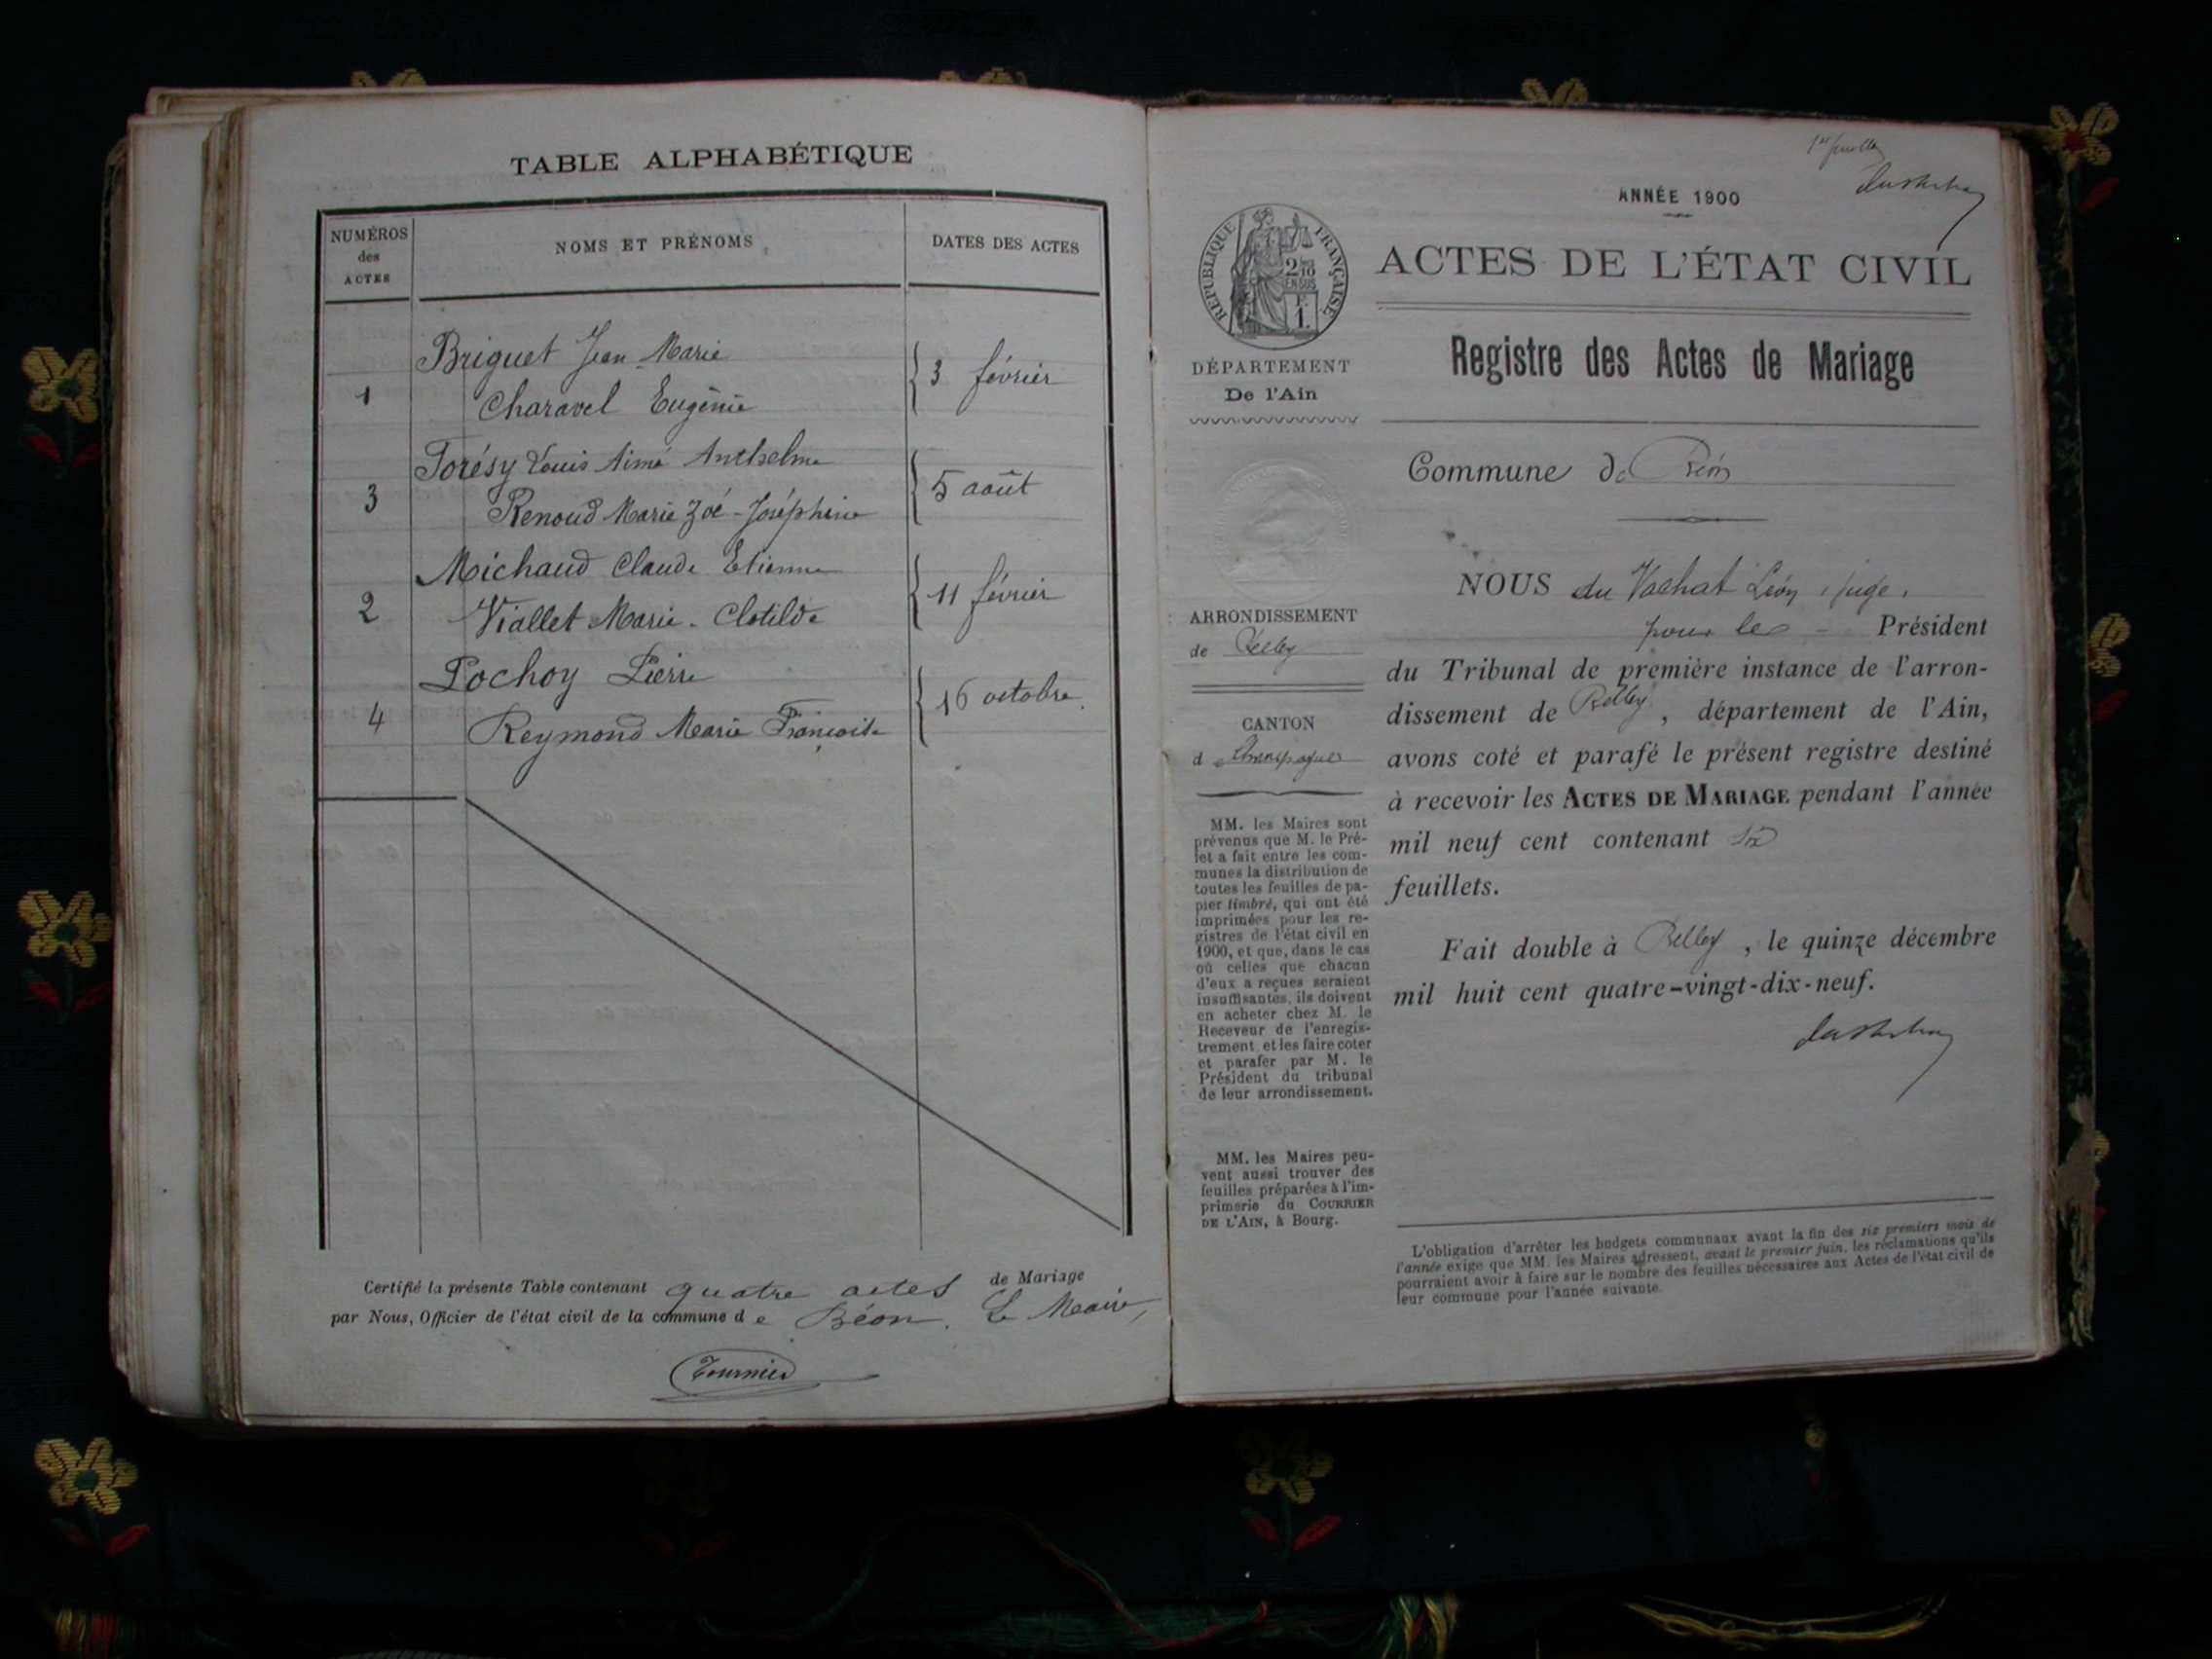 TABLE ALPHABÉTIQUE
NUMÉROS
des
ACTES
NOMS ET PRÉNOMS
DATES DES ACTES
Briguet Jean-Marie
1
Charavel Eugénie
3 février
Torésy Louis Aimé Anthelme
3
Renoud Marie Zoé-Joséphine
5 août
Michaud Claude Etienne
2
Viallet Marie-Clotilde
11 février
Pochoy Pierre
4
Reymond Marie Françoise
16 octobre
Certifié la présente Table contenant quatre actes de Mariage
par Nous, Officier de l'état civil de la commune de Béon. Le Maire,
Tournier
1er feuillet
ANNÉE 1900
RÉPUBLIQUE FRANÇAISE
2/10
EN SUS
F.
1.
ACTES DE L'ÉTAT CIVIL
Registre des Actes de Mariage
DÉPARTEMENT
De l'Ain
Commune de Béon
NOUS du Vachat Léon, juge,
pour le Président
du Tribunal de première instance de l'arron-
dissement de Belley, département de l'Ain,
avons coté et parafé le présent registre destiné
à recevoir les ACTES DE MARIAGE pendant l'année
mil neuf cent contenant six
feuillets.
Fait double à Belley, le quinze décembre
mil huit cent quatre-vingt-dix-neuf.
ARRONDISSEMENT
de Belley
CANTON
d Champagne
MM. les Maires sont
prévenus que M. le Pré-
fet a fait entre les com-
munes la distribution de
toutes les feuilles de pa-
pier timbré, qui ont été
imprimées pour les re-
gistres de l'état civil en
1900, et que, dans le cas
où celles que chacun
d'eux a reçues seraient
insuffisantes, ils doivent
en acheter chez M. le
Receveur de l'enregis-
trement et les faire coter
et parafer par M. le
Président du tribunal
de leur arrondissement.
MM. les Maires peu-
vent aussi trouver des
feuilles préparées à l'im-
primerie du COURRIER
DE L'AIN, à Bourg.
L'obligation d'arrêter les budgets communaux avant la fin des six premiers mois de
l'année exige que MM. les Maires adressent, avant le premier juin, les réclamations qu'ils
pourraient avoir à faire sur le nombre des feuilles nécessaires aux Actes de l'état civil de
leur commune pour l'année suivante.